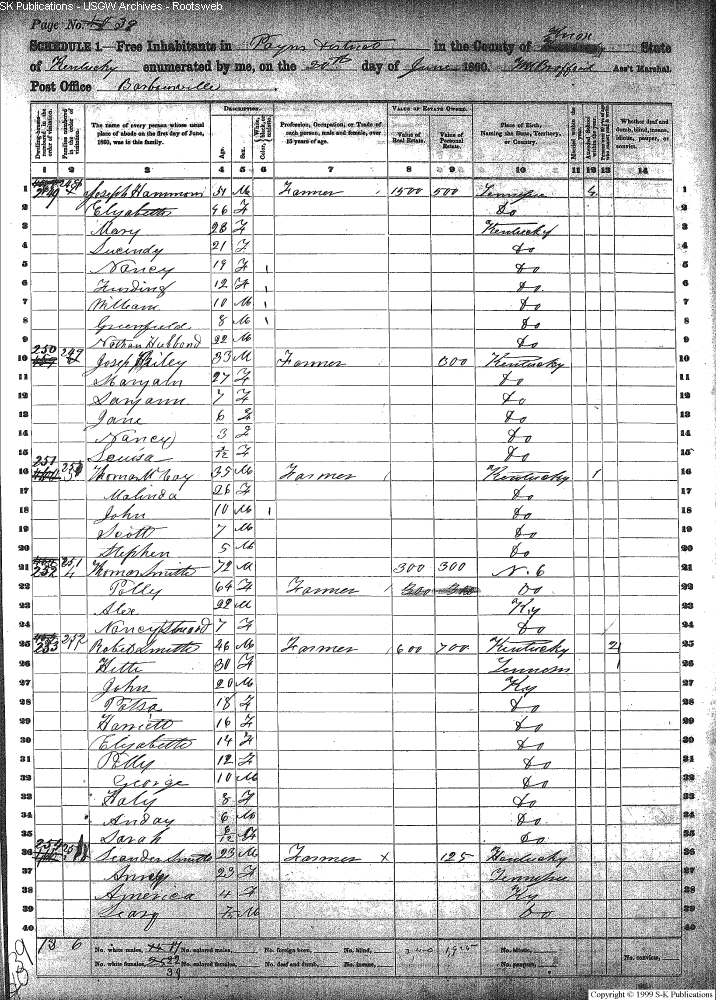 SK Publications - USGW Archives - Rootsweb
Page No. 39
SCHEDULE 1.—Free Inhabitants in Payns District in the County of Knox State
of Kentucky enumerated by me, on the 20th day of June 1860. Ass't Marshal.
Post Office Barboursville
DESCRIPTION. VALUE OF ESTATE OWNED.
Dwelling-houses—numbered in the order of visitation. Families numbered in the order of visitation. The name of every person whose usual place of abode on the first day of June, 1860, was in this family. Age. Sex. Color, White, black, or mulatto. Profession, Occupation, or Trade of each person, male and female, over 15 years of age. Value of Real Estate. Value of Personal Estate. Place of Birth, Naming the State, Territory, or Country. Married within the year. Attended School within the year. Whether deaf and dumb, blind, insane, idiotic, pauper, or convict.
1 2 3 4 5 6 7 8 9 10 11 12 13 14
1 249 Joseph Hammons 51 M Farmer 1500 500 Tennessee 1
2 Elizabeth 46 F Do 2
3 Mary 23 F Kentucky 3
4 Lucindy 21 F Do 4
5 Nancy 19 F 1 Do 5
6 12 F 1 Do 6
7 William 10 M 1 Do 7
8 Greenfield 8 M 1 Do 8
9 Nathan Hubbard 22 M Do 9
10 250 249 Joseph Riley 33 M Farmer 300 Kentucky 10
11 Maryaln 27 F Do 11
12 Saryann 7 F Do 12
13 Jane 6 F Do 13
14 Nancy 3 F Do 14
15 Louisa F Do 15
16 251 250 Thomas McCoy 35 M Farmer Kentucky 1 16
17 Malinda 26 F Do 17
18 John 10 M 1 Do 18
19 Scott 7 M Do 19
20 Stephen 5 M Do 20
21 252 251 Thomas Smith 72 M 300 300 N. C 21
22 Polly 64 F Farmer Do 22
23 Alex 22 M Ky 23
24 Nancy 7 F Do 24
25 253 252 Robert Smith 46 M Farmer 600 700 Kentucky 2 25
26 Hettie 30 F 1 26
27 John 20 M Ky 27
28 Betsa 18 F Do 28
29 Harriett 16 F Do 29
30 Elizabeth 14 F Do 30
31 Polly 12 F Do 31
32 George 10 M Do 32
33 Katy 8 F Do 33
34 Anday 6 M Do 34
35 Sarah F Do 35
36 254 Leander Smith 23 M Farmer x 125 Kentucky 36
37 23 F Tennessee 37
38 America 4 F Ky 38
39 M Do 39
40 40
13 6 No. white males, 17 No. colored males, No. foreign born, No. blind, No. idiotic, No. convicts,
No. white females, 22 No. colored females, No. deaf and dumb, No. insane, No. paupers,
39
Copyright © 1999 S-K Publications